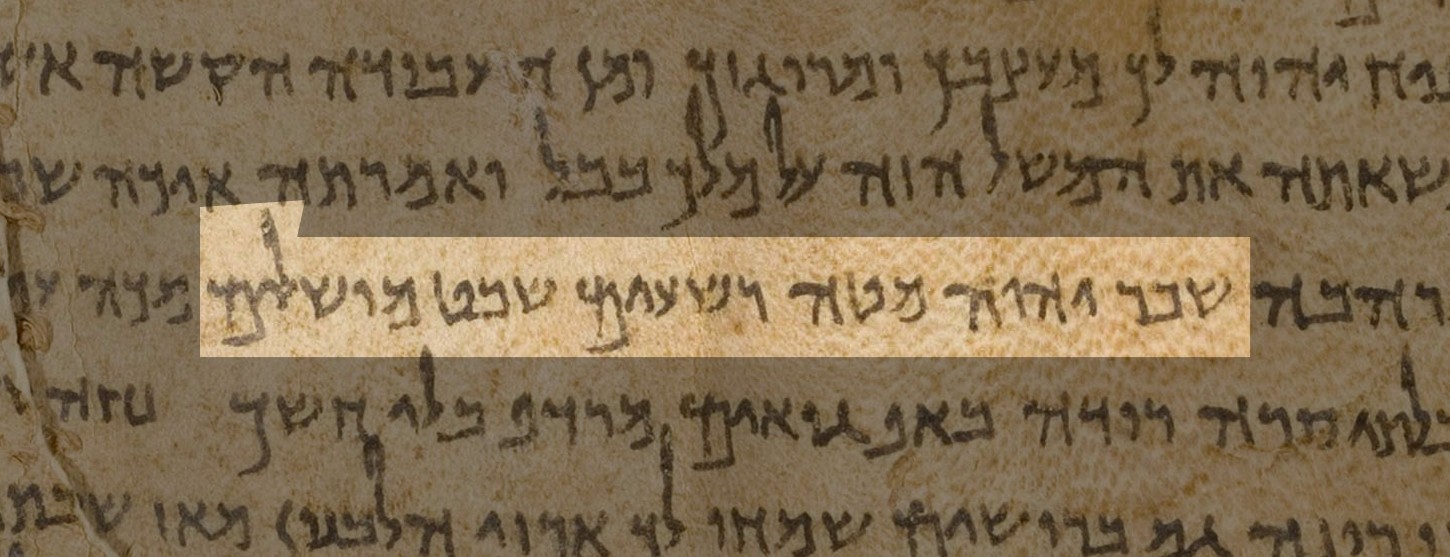 יהוה לך מעצבך ומרוגזך ומן ה עבודה הקשה
שאתה את המשל הזה על מלך בבל ואמרתה איכה
רהבה שבר יהוה מטה רשעים שבט מושלים מכה
בלתי סרה רודה באף גואים מרדף בלי חשך נחה
רינה גם ברושים שמחו לך ארזי הלבנון מאז שכבת